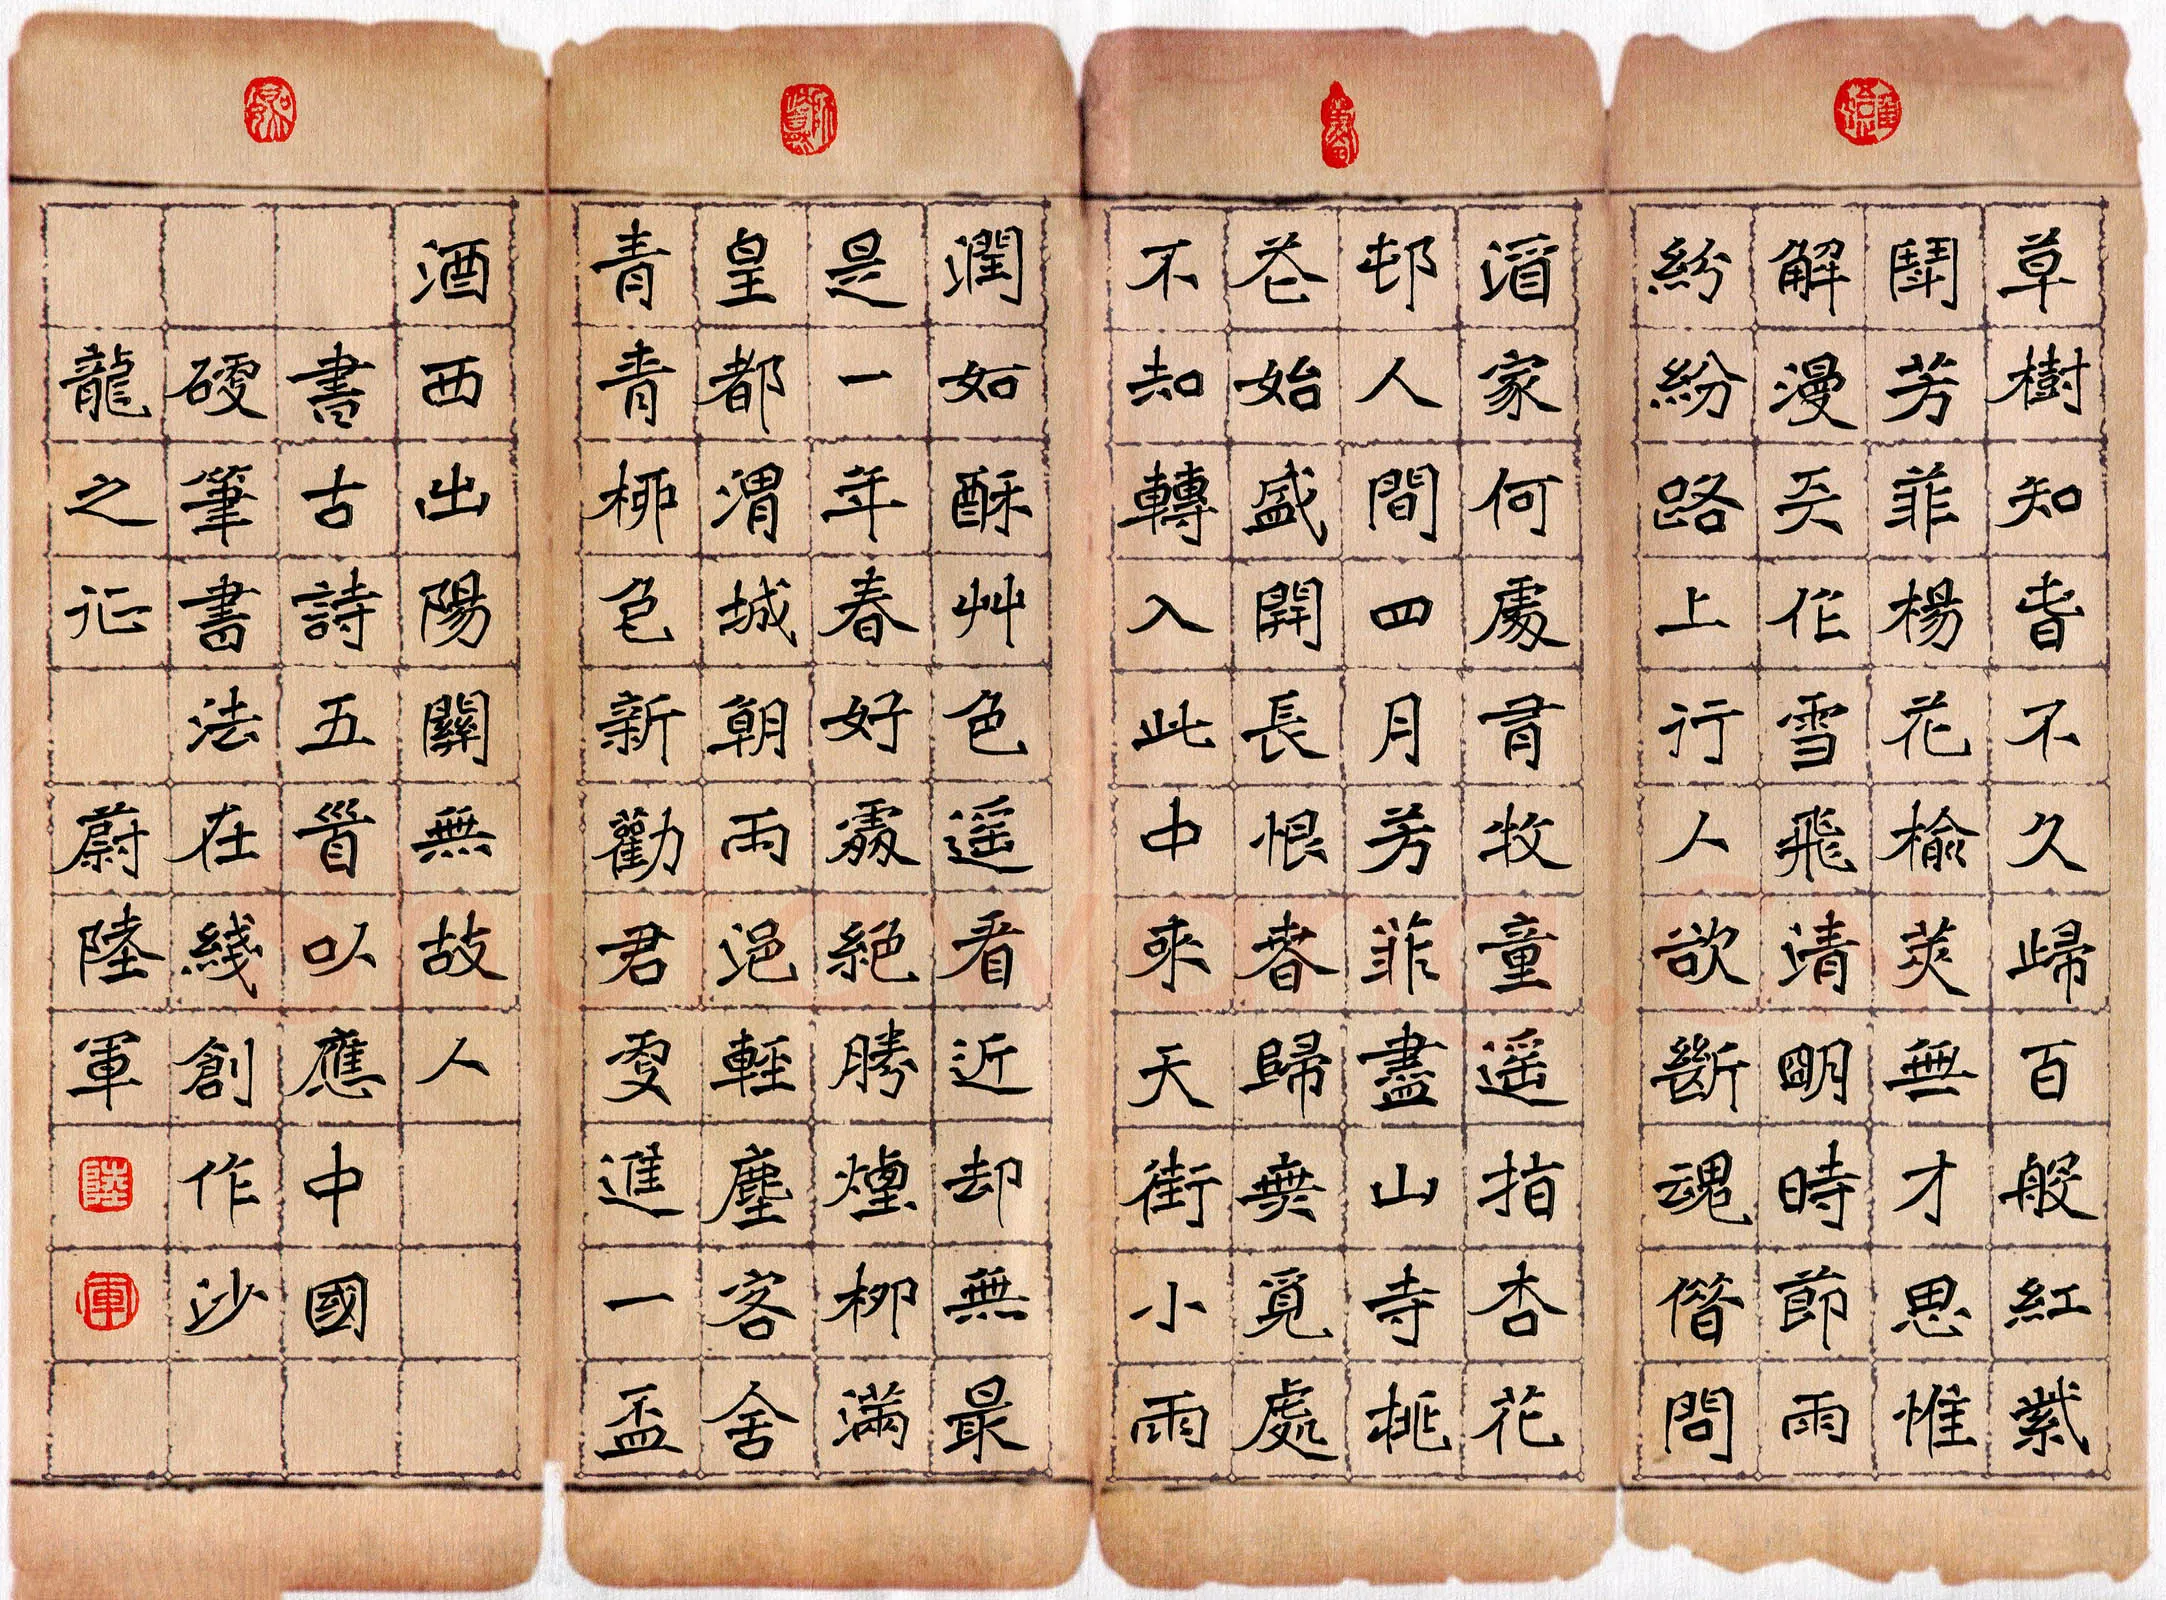 草樹知春不久歸百般紅紫
鬪芳菲楊花榆莢無才思惟
解漫天作雪飛清明時節雨
紛紛路上行人欲斷魂借問
酒家何處有牧童遥指杏花
邨人間四月芳菲盡山寺桃
花始盛開長恨春歸無覓處
不知轉入此中來天街小雨
潤如酥艸色遥看近却無最
是一年春好處絕勝煙柳滿
皇都渭城朝雨浥輕塵客舍
青青柳色新勸君更進一盃
酒西出陽關無故人
書古詩五首以應中國
硬筆書法在綫創作沙
龍之征 蔚陸軍
陸
軍